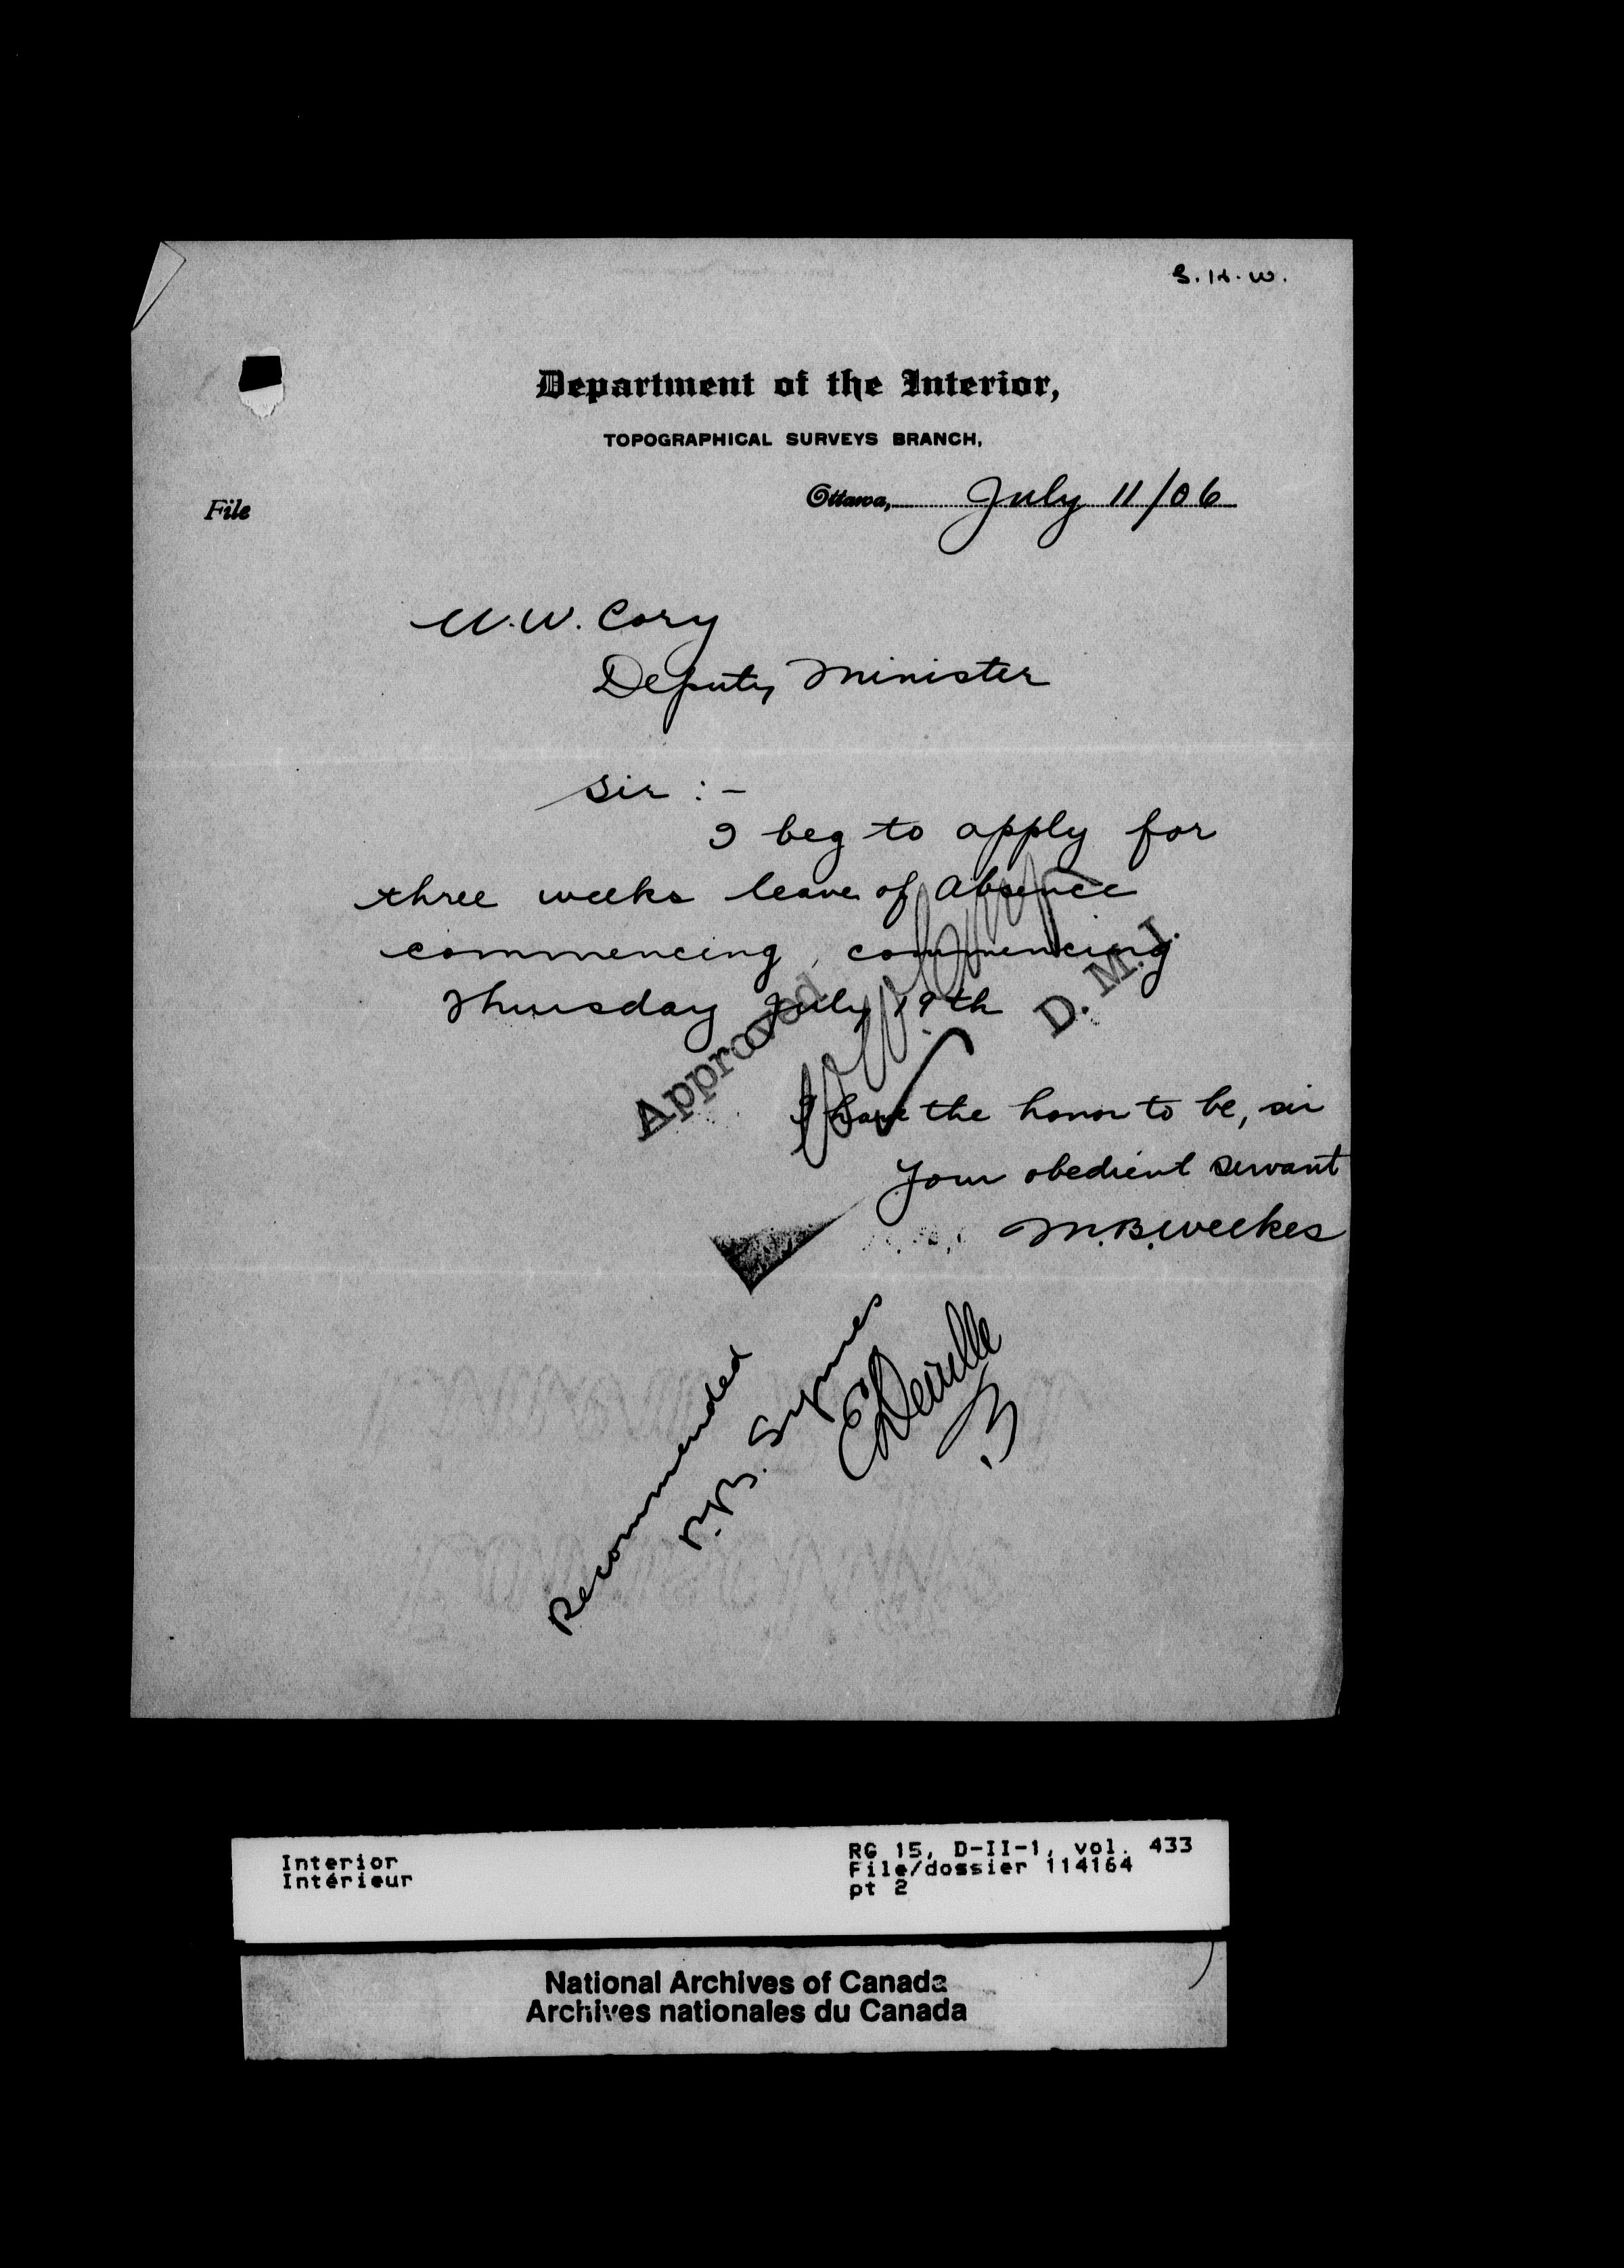 S.H.W.
Department of the Interior,
TOPOGRAPHICAL SURVEYS BRANCH,
Ottawa, July 11/06
File
W.W. Cory
Deputy Minister
Sir :-
I beg to apply for
three weeks leave of absence
commencing, commencing
Thursday July 19th
Approved
W W Cory
D. M. I.
I have the honor to be, sir
Your obedient servant
M.B. Weekes
Recommended
P.B. Symes
E Deville
Interior
Intérieur
RG 15, D-II-1, vol. 433
File/dossier 114164
pt 2
National Archives of Canada
Archives nationales du Canada